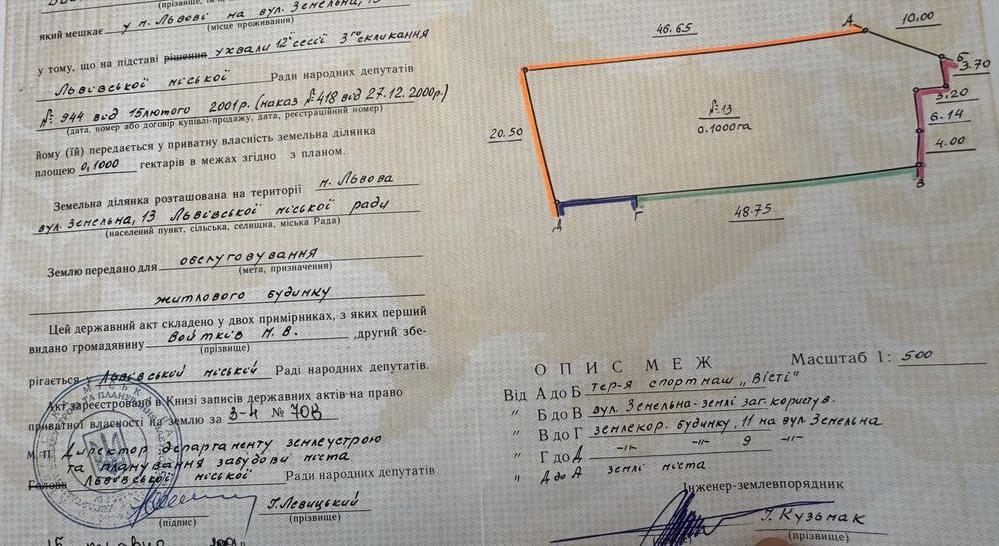 (прізвище, ім'я,
який мешкає у м. Львові на вул. Земельна, 13
(місце проживання)
у тому, що на підставі рішення ухвали 12ої сесії 3го скликання
Львівської міської Ради народних депутатів
№ 944 від 15 лютого 2001р. (наказ №418 від 27.12.2000р.)
(дата, номер або договір купівлі-продажу, дата, реєстраційний номер)
йому (їй) передається у приватну власність земельна ділянка
площею 0,1000 гектарів в межах згідно з планом.
Земельна ділянка розташована на території м. Львова
вул. Земельна, 13 Львівської міської ради
(населений пункт, сільська, селищна, міська Рада)
Землю передано для обслуговування
(мета, призначення)
житлового будинку
Цей державний акт складено у двох примірниках, з яких перший
видано громадянину Войтків М. В. , другий збе-
(прізвище)
рігається у Львівській міській Раді народних депутатів.
Акт зареєстровано в Книзі записів державних актів на право
приватної власності на землю за 3-4 № 708
М. П. Директор департаменту землеустрою
та планування забудови міста
Голова Львівської міської Ради народних депутатів
Г. Левицький
(підпис) (прізвище)
46.65
А
10.00
Б
3.70
3.20
6.14
4.00
В
20.50
№ 13
0.1000га
Д
Г
48.75
ОПИС МЕЖ Масштаб 1: 500
Від А до Б тер-я спортмаш „Вісті"
" Б до В вул. Земельна-землі заг. користув.
" В до Г землекор. будинку, 11 на вул. Земельна
" Г до Д -"- -"- 9 -"-
" Д до А землі міста
Інженер-землевпорядник
І. Кузьмак
(прізвище)